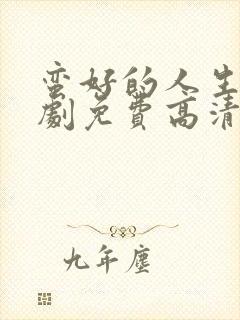 蛮好的人生
劇免费高清
九年塵